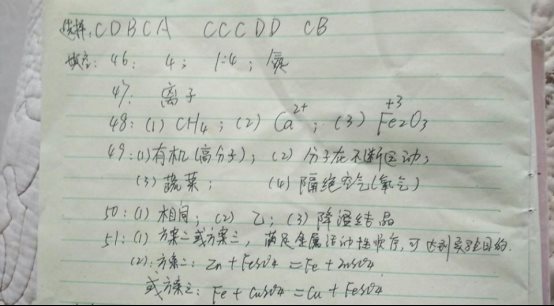 选择: CDBCA CCCDD CB
填空: 46: 4; 1:4; 氮
47: 离子
48: (1) CH4; (2) Ca²⁺; (3) Fe2O3 +3
49: (1) 有机(高分子); (2) 分子在不断运动;
(3) 蔬菜; (4) 隔绝空气(氧气)
50: (1) 相同; (2) 乙; (3) 降温结晶
51: (1) 方案二或方案三, 满足金属活动性顺序, 可达到实验目的.
(2): 方案二: Zn + FeSO4 = Fe + ZnSO4
或方案三: Fe + CuSO4 = Cu + FeSO4